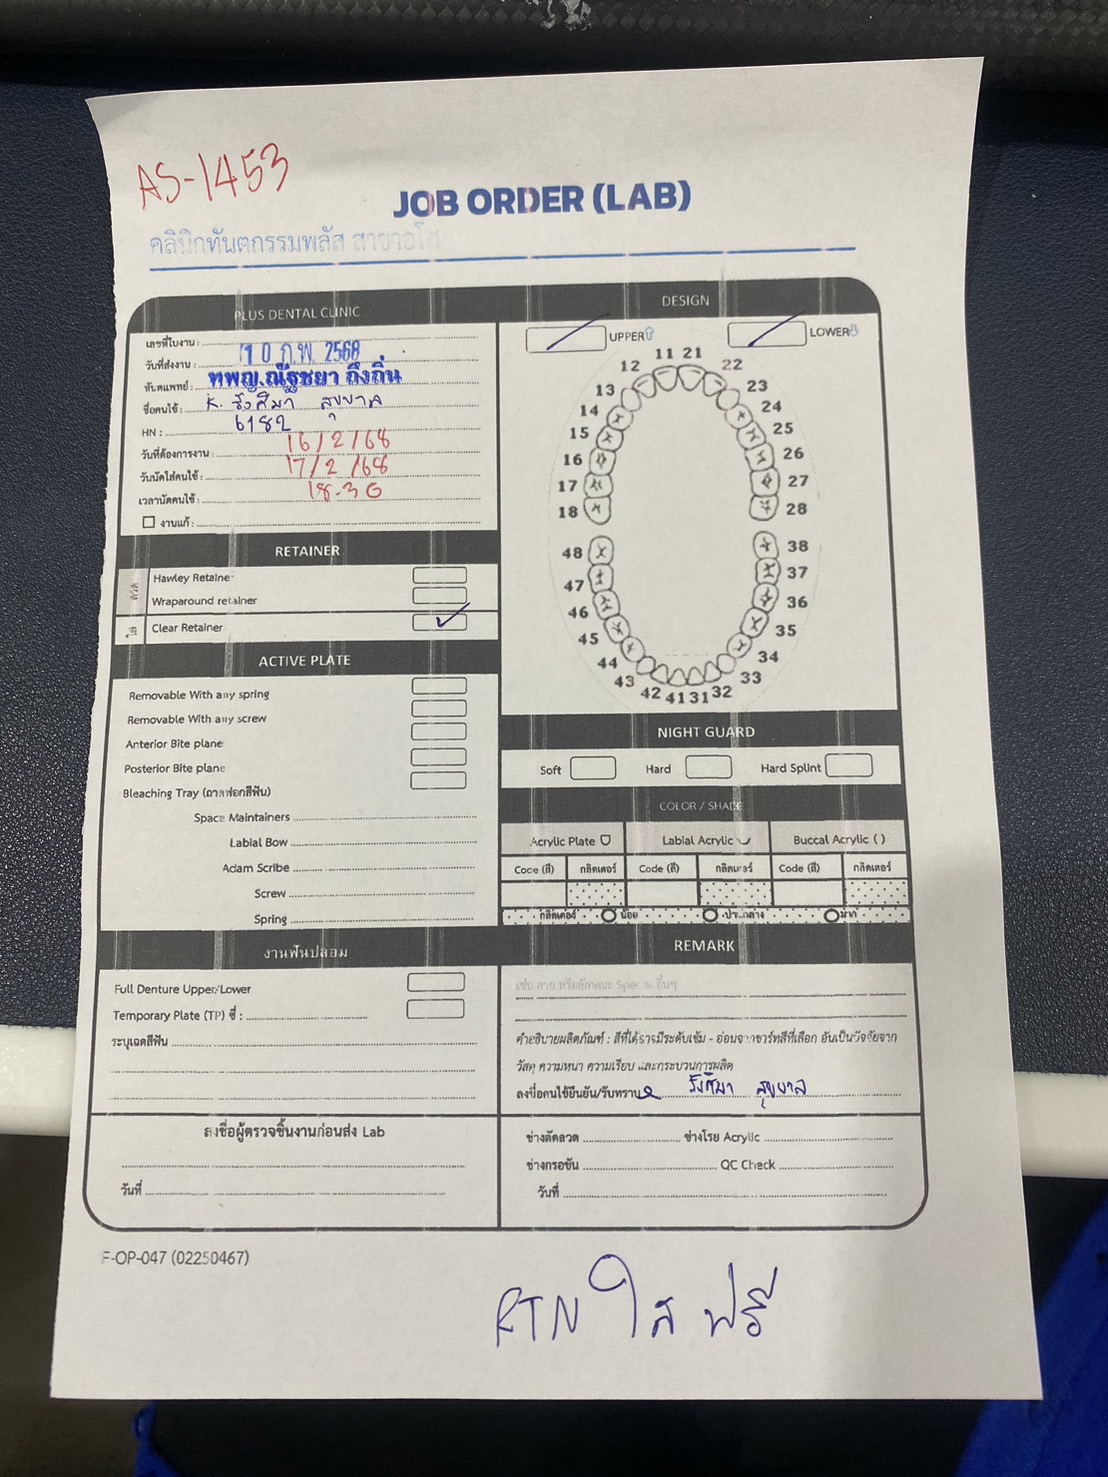 AS-1453
JOB ORDER (LAB)
คลินิกทันตกรรมพลัส สาขาอโศก
PLUS DENTAL CLINIC
เลขที่ใบงาน :
วันที่ส่งงาน : 10 ก.พ. 2568
ทันตแพทย์ : ทพญ.ณัฐชยา ถึงถิ่น
ชื่อคนไข้ : K. รังสิมา สุขบาล
HN : 6182
วันที่ต้องการงาน : 16/2/68
วันนัดใส่คนไข้ : 17/2/68
เวลานัดคนไข้ : 18.30
งานแก้ :
DESIGN
UPPER LOWER
11 21
12 22
13 23
14 24
15 25
16 26
17 27
18 28
48 38
47 37
46 36
45 35
44 34
43 33
42 41 31 32
RETAINER
ลวด
Hawley Retainer
Wraparound retainer
ใส
Clear Retainer ✓
ACTIVE PLATE
Removable With any spring
Removable With any screw
Anterior Bite plane
Posterior Bite plane
Bleaching Tray (ถาดฟอกสีฟัน)
Space Maintainers
Labial Bow
Adam Scribe
Screw
Spring
NIGHT GUARD
Soft Hard Hard Splint
COLOR / SHADE
Acrylic Plate Labial Acrylic Buccal Acrylic ( )
Code (สี) กลิตเตอร์ Code (สี) กลิตเตอร์ Code (สี) กลิตเตอร์
กลิตเตอร์ น้อย ปานกลาง มาก
งานฟันปลอม
Full Denture Upper/Lower
Temporary Plate (TP) ซี่ :
ระบุเฉดสีฟัน
REMARK
เช่น ลาย หรือลักษณะ Special อื่นๆ
คำอธิบายผลิตภัณฑ์ : สีที่ได้อาจมีระดับเข้ม - อ่อนจากชาร์ทสีที่เลือก อันเป็นปัจจัยจาก
วัสดุ ความหนา ความเรียบ และกระบวนการผลิต
ลงชื่อคนไข้ยืนยัน/รับทราบ รังสิมา สุขบาล
ลงชื่อผู้ตรวจชิ้นงานก่อนส่ง Lab
วันที่
ช่างดัดลวด ช่างโรย Acrylic
ช่างกรอขัน QC Check
วันที่
F-OP-047 (02250467)
RTN ใส ฟรี